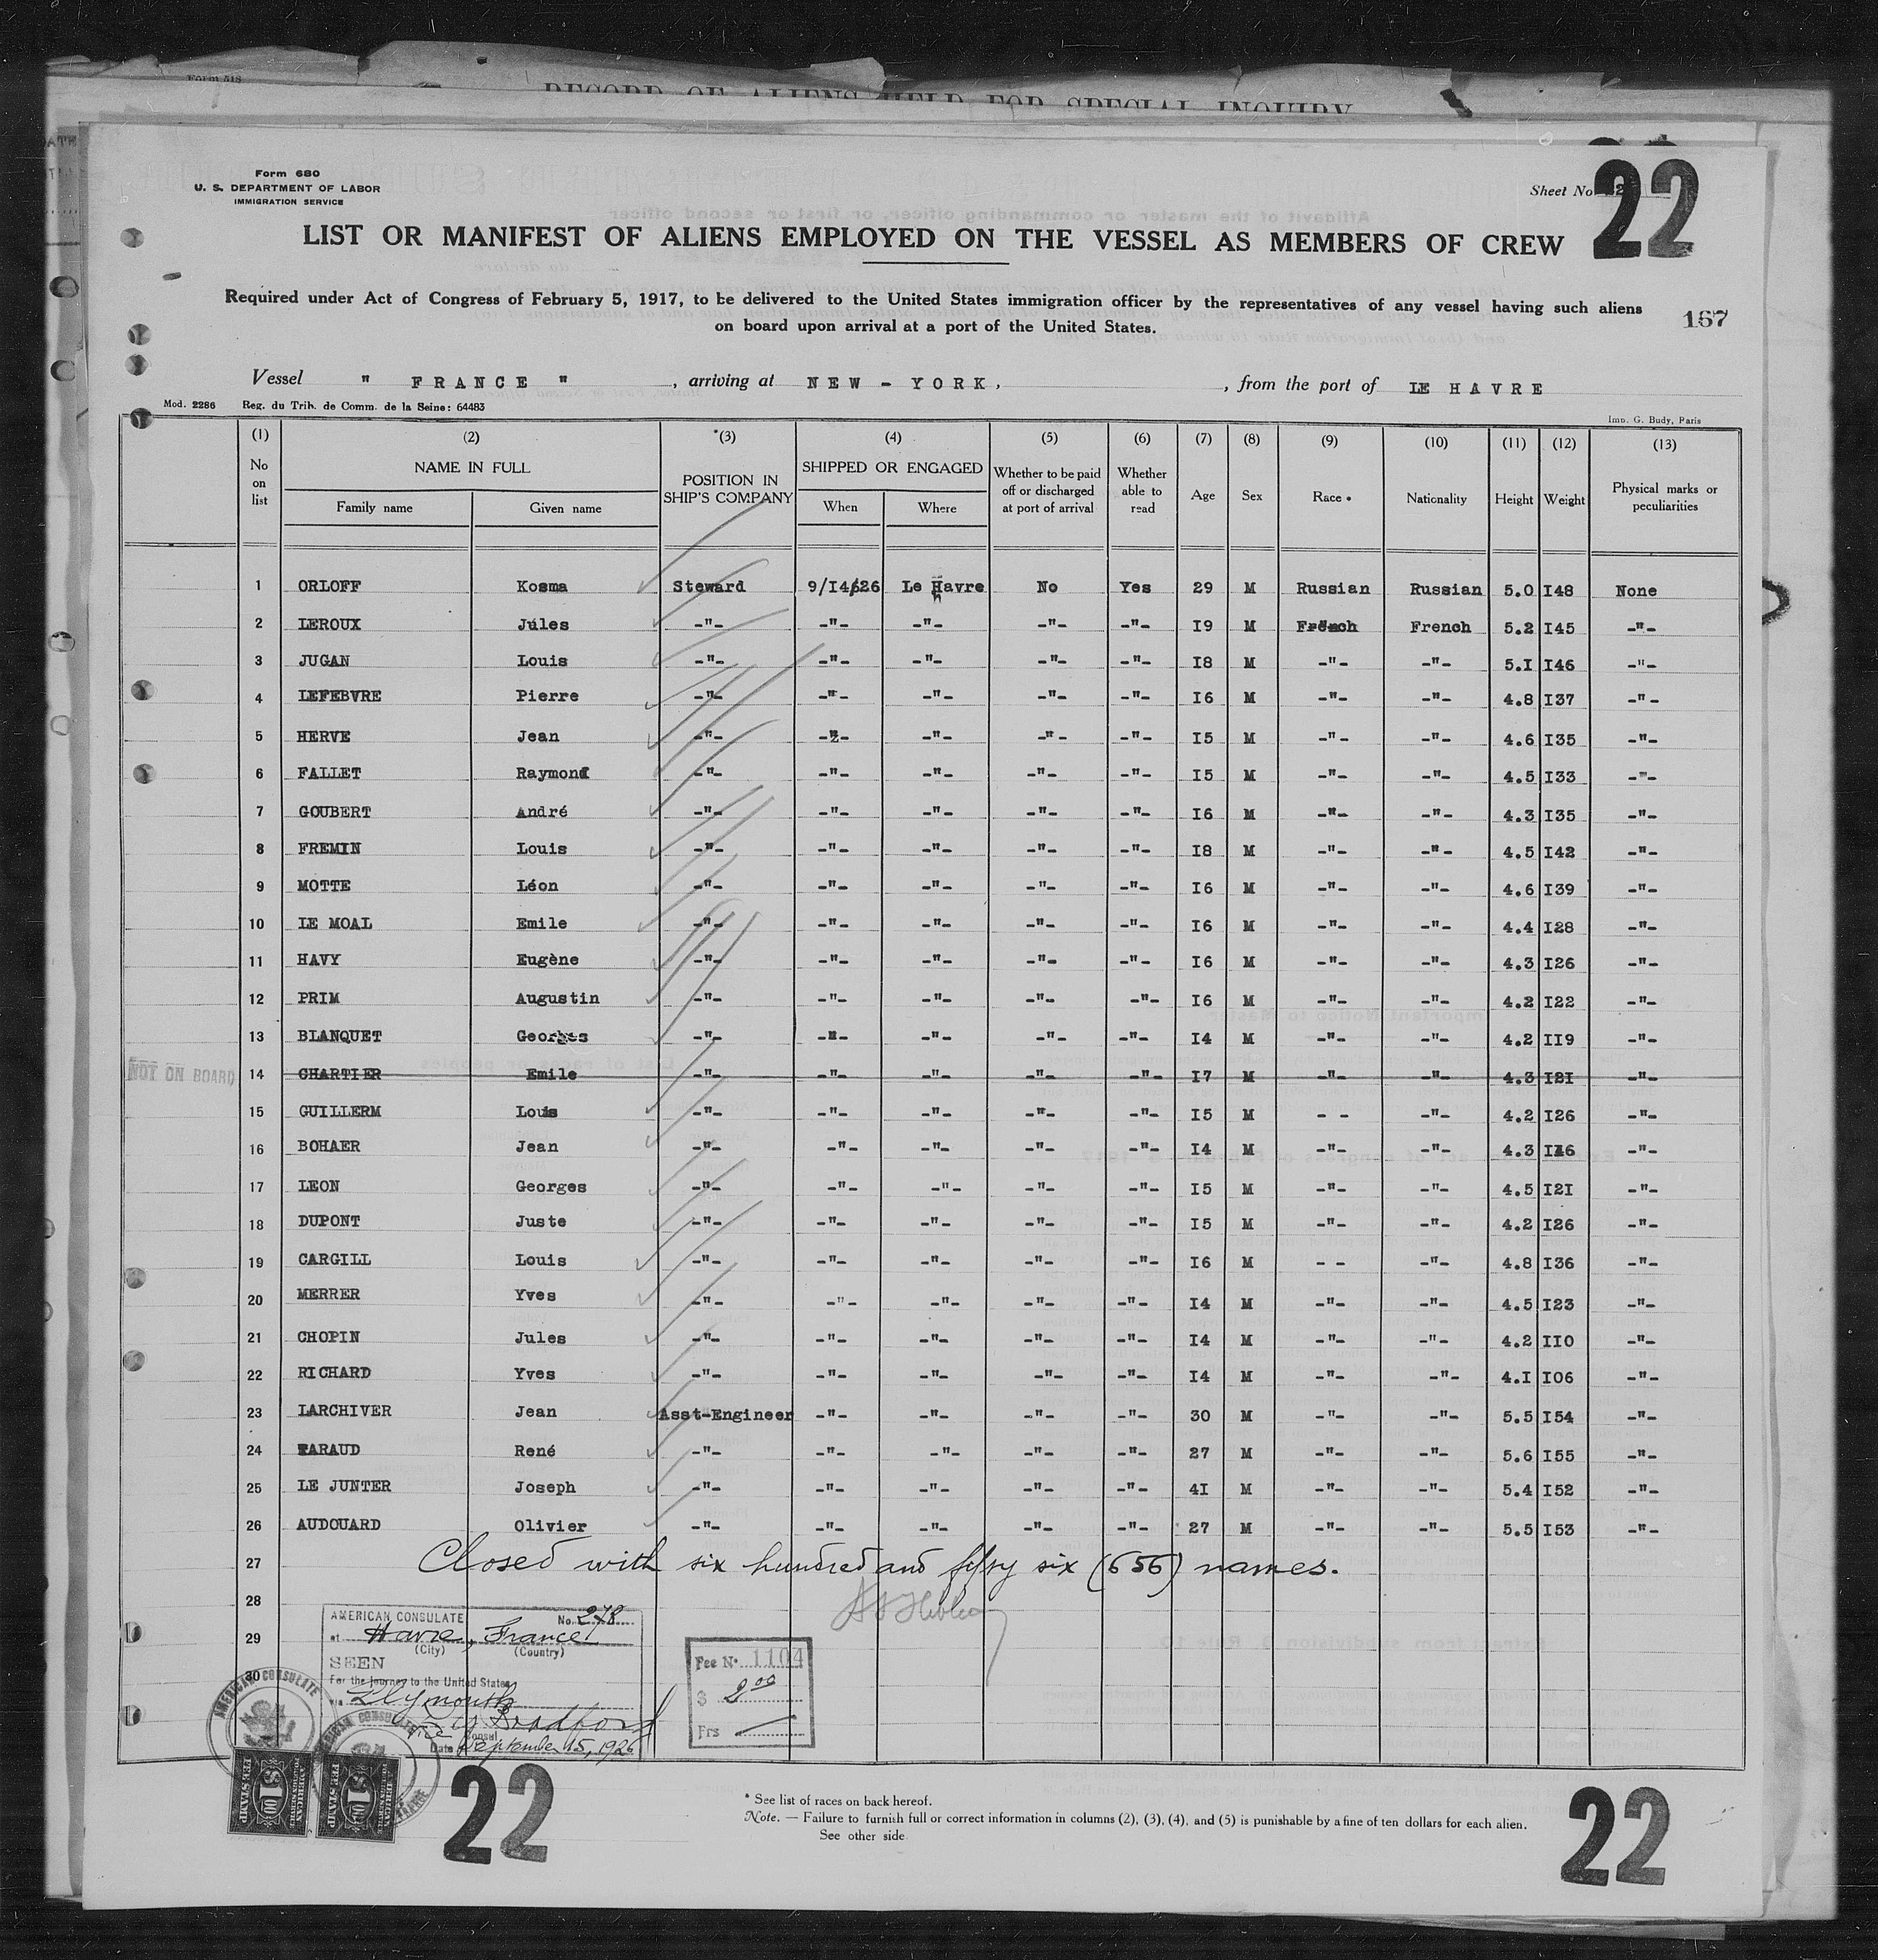 Form 518
RECORD OF ALIENS HELD FOR SPECIAL INQUIRY
Form 680
U. S. DEPARTMENT OF LABOR
IMMIGRATION SERVICE
Sheet No
22
LIST OR MANIFEST OF ALIENS EMPLOYED ON THE VESSEL AS MEMBERS OF CREW
Required under Act of Congress of February 5, 1917, to be delivered to the United States immigration officer by the representatives of any vessel having such aliens
on board upon arrival at a port of the United States.
167
Vessel " FRANCE " , arriving at NEW - YORK, , from the port of LE HAVRE
Mod. 2286 Reg. du Trib. de Comm. de la Seine: 64483 Imp. G. Budy, Paris
(1) (2) *(3) (4) (5) (6) (7) (8) (9) (10) (11) (12) (13)
No on list NAME IN FULL POSITION IN SHIP'S COMPANY SHIPPED OR ENGAGED Whether to be paid off or discharged at port of arrival Whether able to read Age Sex Race * Nationality Height Weight Physical marks or peculiarities
Family name Given name When Where
1 ORLOFF Kosma Steward 9/I4/26 Le Havre No Yes 29 M Russian Russian 5.0 I48 None
2 LEROUX Jules -"- -"- -"- -"- -"- I9 M French French 5.2 I45 -"-
3 JUGAN Louis -"- -"- -"- -"- -"- I8 M -"- -"- 5.I I46 -"-
4 LEFEBVRE Pierre -"- -"- -"- -"- -"- I6 M -"- -"- 4.8 I37 -"-
5 HERVE Jean -"- -"- -"- -"- -"- I5 M -"- -"- 4.6 I35 -"-
6 FALLET Raymond -"- -"- -"- -"- -"- I5 M -"- -"- 4.5 I33 -"-
7 GOUBERT André -"- -"- -"- -"- -"- I6 M -"- -"- 4.3 I35 -"-
8 FREMIN Louis -"- -"- -"- -"- -"- I8 M -"- -"- 4.5 I42 -"-
9 MOTTE Léon -"- -"- -"- -"- -"- I6 M -"- -"- 4.6 I39 -"-
10 LE MOAL Emile -"- -"- -"- -"- -"- I6 M -"- -"- 4.4 I28 -"-
11 HAVY Eugène -"- -"- -"- -"- -"- I6 M -"- -"- 4.3 I26 -"-
12 PRIM Augustin -"- -"- -"- -"- -"- I6 M -"- -"- 4.2 I22 -"-
13 BLANQUET Georges -"- -"- -"- -"- -"- I4 M -"- -"- 4.2 II9 -"-
NOT ON BOARD 14 CHARTIER Emile -"- -"- -"- -"- -"- I7 M -"- -"- 4.3 I2I -"-
15 GUILLERM Louis -"- -"- -"- -"- -"- I5 M - - -"- 4.2 I26 -"-
16 BOHAER Jean -"- -"- -"- -"- -"- I4 M -"- -"- 4.3 -"-
17 LEON Georges -"- -"- -"- -"- -"- I5 M -"- -"- 4.5 I2I -"-
18 DUPONT Juste -"- -"- -"- -"- -"- I5 M -"- -"- 4.2 I26 -"-
19 CARGILL Louis -"- -"- -"- -"- -"- I6 M - - -"- 4.8 I36 -"-
20 MERRER Yves -"- -"- -"- -"- -"- I4 M -"- -"- 4.5 I23 -"-
21 CHOPIN Jules -"- -"- -"- -"- -"- I4 M -"- -"- 4.2 II0 -"-
22 RICHARD Yves -"- -"- -"- -"- -"- I4 M -"- -"- 4.I I06 -"-
23 LARCHIVER Jean Asst-Engineer -"- -"- -"- -"- 30 M -"- -"- 5.5 I54 -"-
24 TARAUD René -"- -"- -"- -"- -"- 27 M -"- -"- 5.6 I55 -"-
25 LE JUNTER Joseph -"- -"- -"- -"- -"- 4I M -"- -"- 5.4 I52 -"-
26 AUDOUARD Olivier -"- -"- -"- -"- -"- 27 M -"- -"- 5.5 I53 -"-
27 Closed with six hundred and fifty six (656) names.
28
29
30
AMERICAN CONSULATE No. 278
at Havre, France
(City) (Country)
SEEN
For the journey to the United States
via Plymouth
Bradford
Consul
Date September 15, 1926
Fee No. 1104
$ 2.00
Frs
AMERICAN CONSULATE
AMERICAN CONSULATE
FRANCE
AMERICAN
$1.00
FEE STAMP
AMERICAN
$1.00
FEE STAMP
22
* See list of races on back hereof.
Note. — Failure to furnish full or correct information in columns (2), (3), (4), and (5) is punishable by a fine of ten dollars for each alien.
See other side.
22